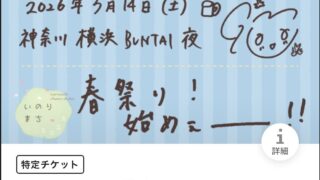 2026年3月14日(土)
神奈川 横浜 BUNTAI 夜
春祭り!
始めぇ――!!
いのり
まち
詳細
特定チケット